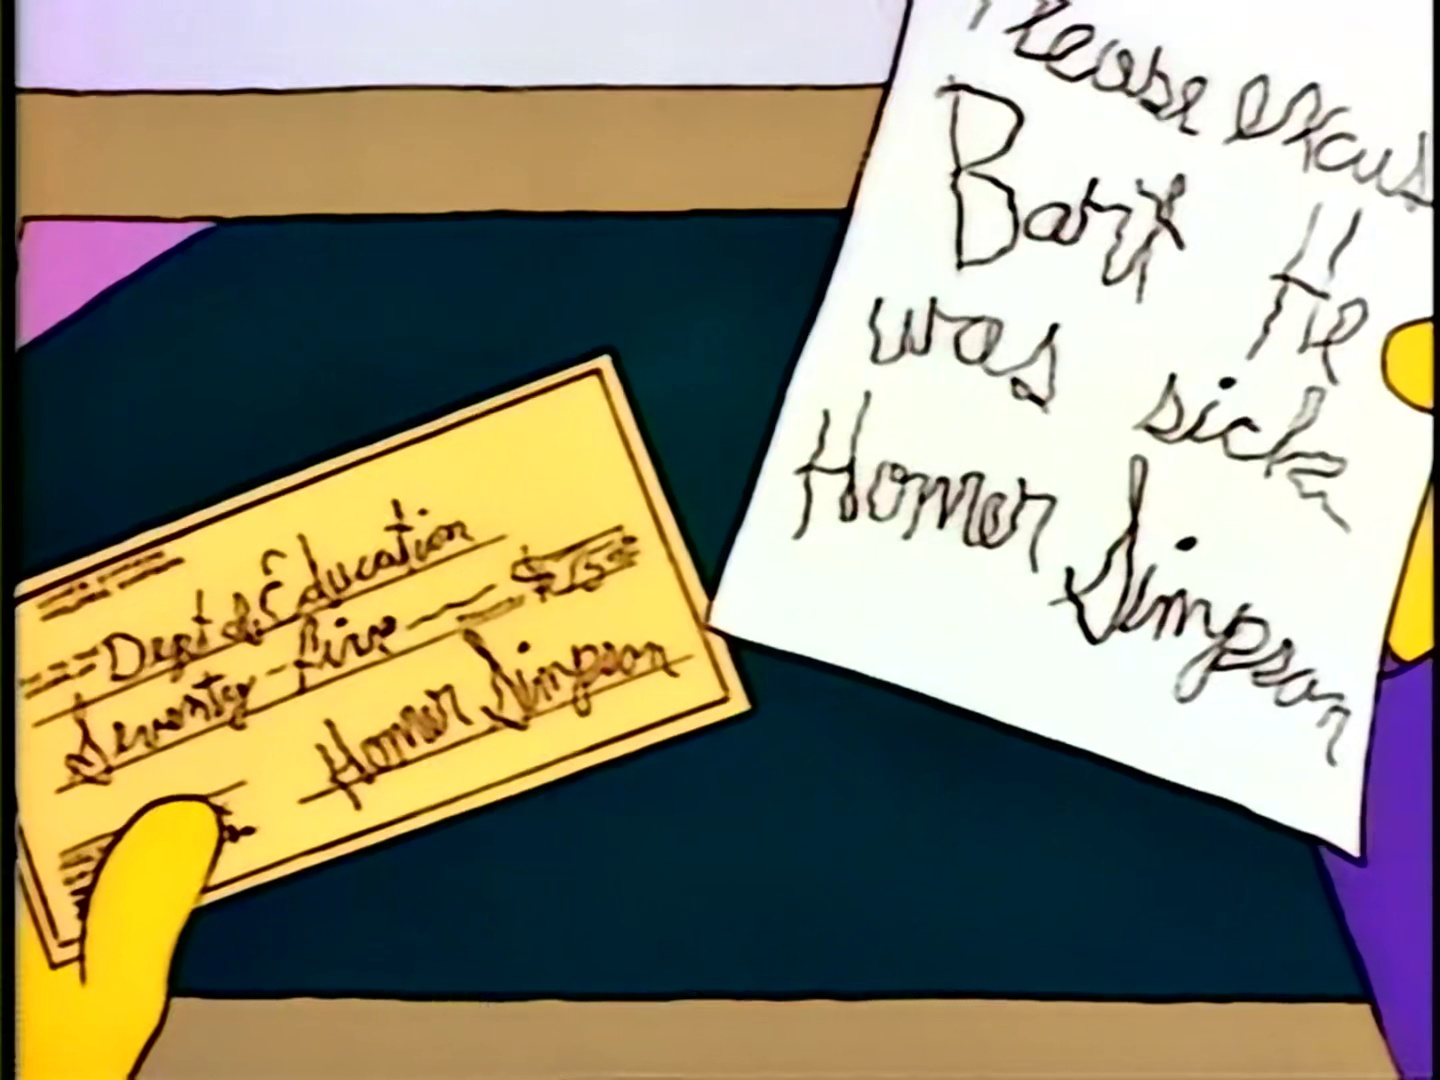 Dept of Education
Seventy-five
Homer Simpson
Please excus
Bart He
was sick
Homer Simpson